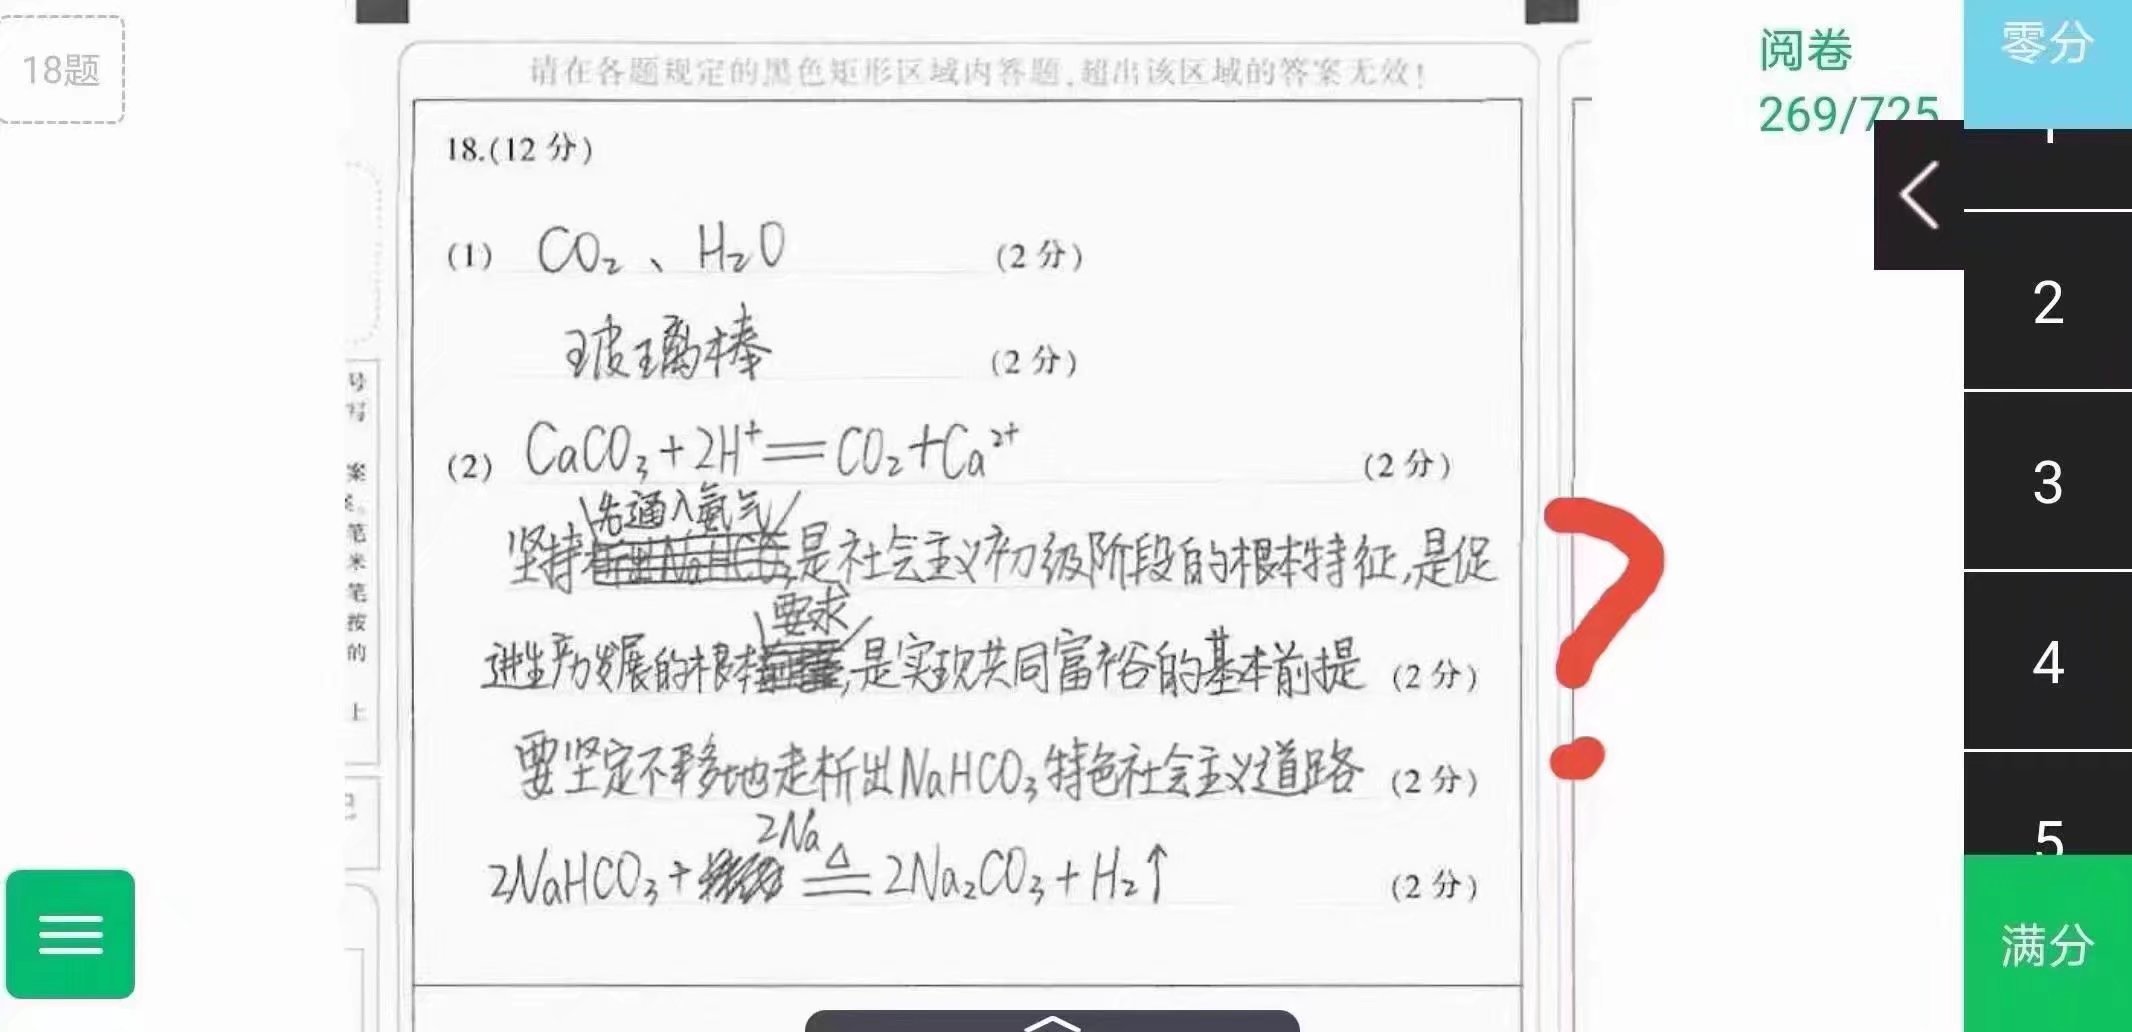 18题
请在各题规定的黑色矩形区域内答题,超出该区域的答案无效!
阅卷
269/725
零分
18.(12分)
(1) CO₂、H₂O (2分)
玻璃棒 (2分)
(2) CaCO₃+2H⁺==CO₂+Ca²⁺ (2分)
先通入氨气
坚持是社会主义初级阶段的根本特征,是促
要求
进生产力发展的根本,是实现共同富裕的基本前提 (2分)
要坚定不移地走析出NaHCO₃特色社会主义道路 (2分)
2Na
2NaHCO₃+ ≜ 2Na₂CO₃+H₂↑ (2分)
?
号
写
案
笔
米
笔
按
的
上
2
3
4
5
满分